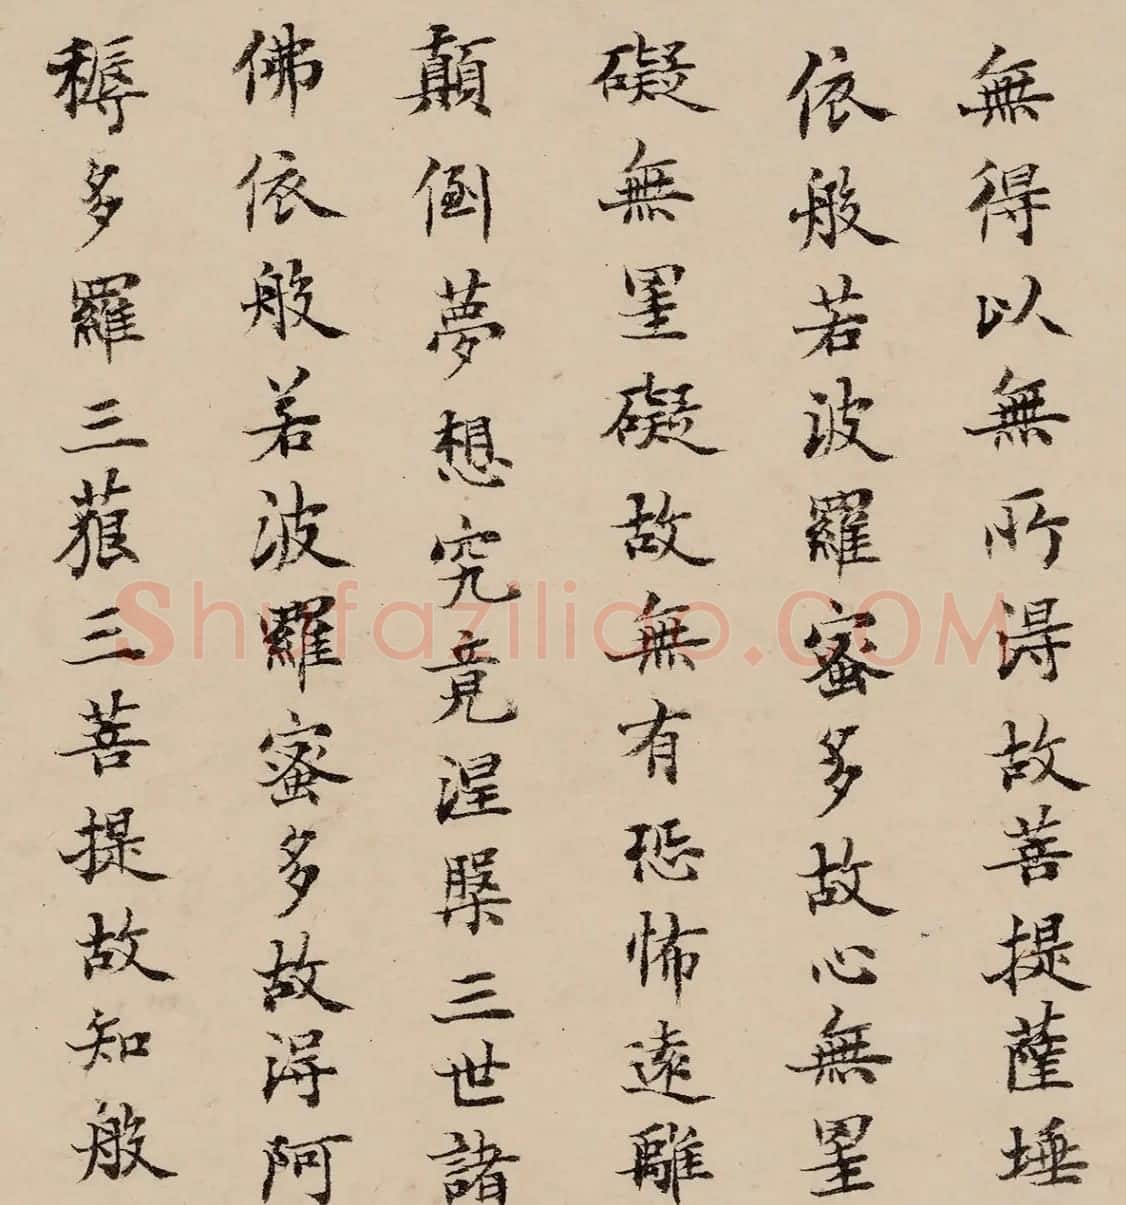 無得以無所得故菩提薩埵
依般若波羅蜜多故心無罣
礙無罣礙故無有恐怖遠離
顛倒夢想究竟涅槃三世諸
佛依般若波羅蜜多故得阿
耨多羅三藐三菩提故知般
Shufaziliao.COM